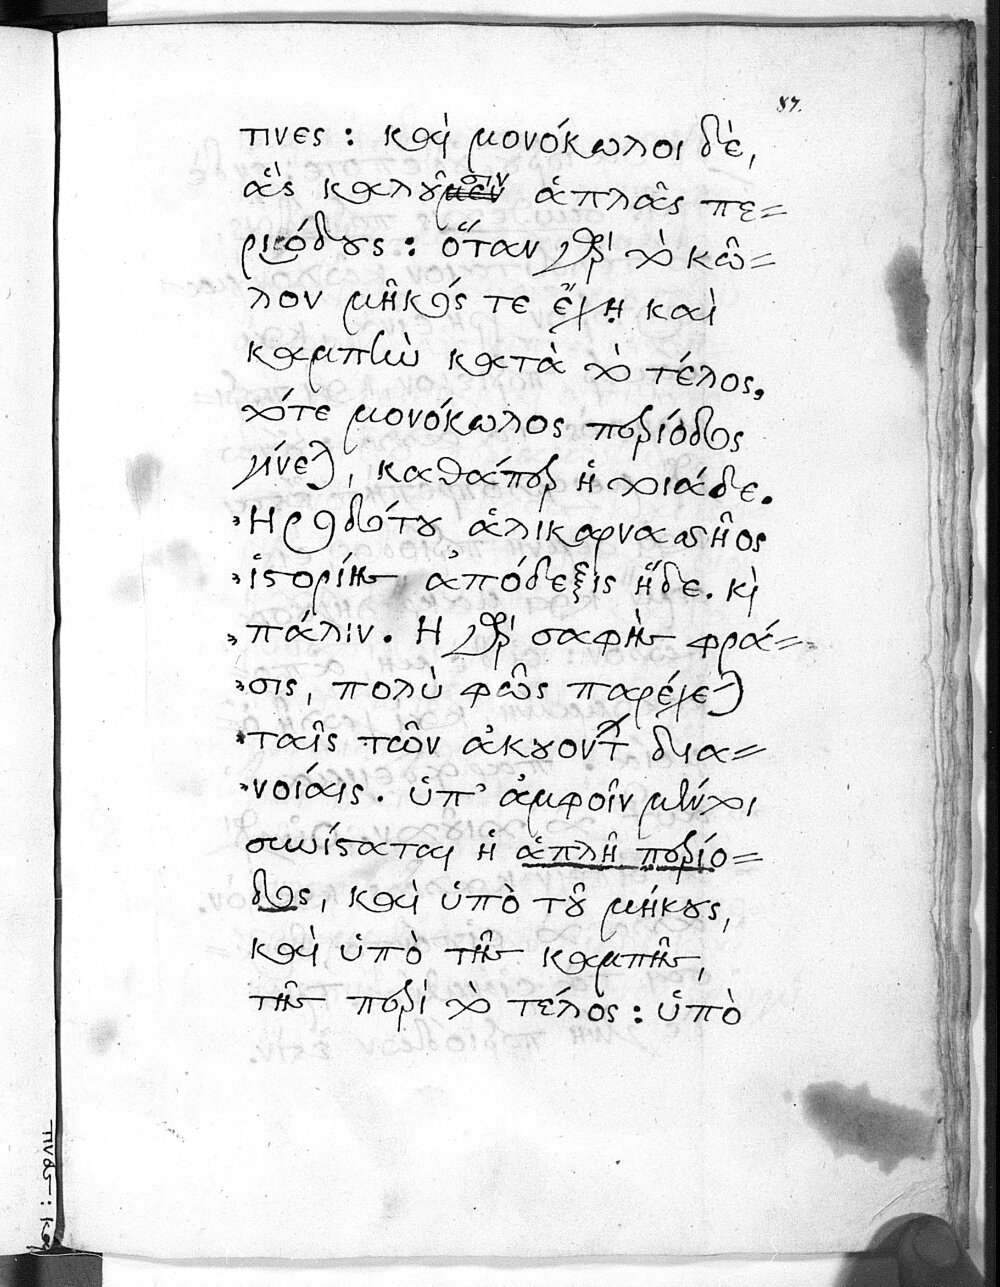 87.
τινες : καὶ μονόκωλοι δὲ,
ἃς καλοῦμεν σιν ἁπλᾶς πε=
ριόδους : ὅταν γὰρ τὸ κῶ=
λον μῆκός τε ἔχῃ καὶ
καμπὴν κατὰ τὸ τέλος,
τότε μονόκωλος περίοδος
γίνεται, καθάπερ ἡ τοιάδε.
Ἡροδότου ἁλικαρνασῆος
ἱστορίης ἀπόδεξις ἥδε. κὶ
πάλιν. Ἡ γὰρ σαφὴς φρά=
σις, πολὺ φῶς παρέχεται
ταῖς τῶν ἀκουόντων δια=
νοίαις. ὑπ' ἀμφοῖν μέντοι
συνίσταται ἡ ἁπλῆ περίο=
δος, καὶ ὑπὸ τοῦ μήκους,
καὶ ὑπὸ τῆς καμπῆς,
τῆς περὶ τὸ τέλος : ὑπὸ